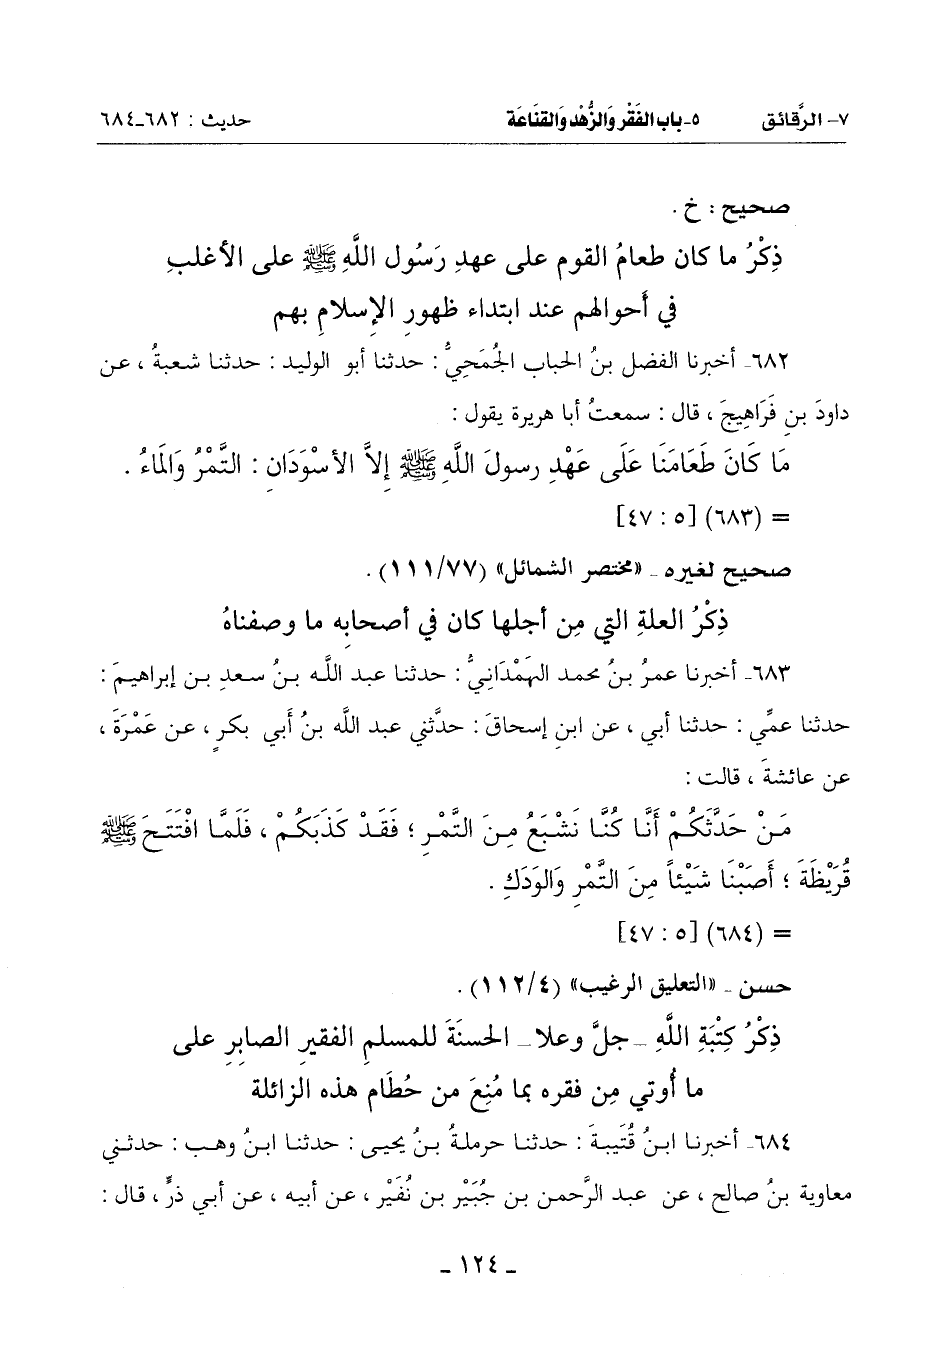 ٧- الرَّقائق ٥-باب الفَقْر وَالزُّهْد وَالقنَاعَة حديث : ٦٨٢-٦٨٤
صحيح : خ .
ذِكْرُ ما كان طعامُ القوم على عهدِ رَسُول اللَّهِ ﷺ على الأغلبِ
في أحوالهم عند ابتداء ظهورِ الإسلامِ بهم
٦٨٢- أخبرنا الفضل بنُ الحباب الجُمَحِيُّ : حدثنا أبو الوليد : حدثنا شعبةُ ، عن
داودَ بنِ فَرَاهِيجَ ، قال : سمعتُ أبا هريرة يقول :
مَا كَانَ طَعَامَنَا عَلَى عَهْدِ رسولَ اللَّهِ ﷺ إِلاَّ الأسْوَدَانِ : التَّمْرُ وَالمَاءُ .
= (٦٨٣) [٥ : ٤٧]
صحيح لغيره - «مختصر الشمائل» (١١١/٧٧) .
ذِكْرُ العلةِ التي مِن أجلها كان في أصحابِه ما وصفناهُ
٦٨٣- أخبرنا عمرُ بنُ محمد الهَمْدَانِيُّ : حدثنا عبد اللَّه بنُ سعدِ بن إبراهيمَ :
حدثنا عمِّي : حدثنا أبي ، عن ابنِ إسحاقَ : حدَّثني عبد اللَّه بنُ أبي بكرٍ ، عن عَمْرَةَ ،
عن عائشةَ ، قالت :
مَنْ حَدَّثَكُمْ أَنَّا كُنَّا نَشْبَعُ مِنَ التَّمْرِ ؛ فَقَدْ كَذَبَكُمْ ، فَلَمَّا افْتَتَحَ ﷺ
قُرَيْظَةَ ؛ أَصَبْنَا شَيْئاً مِنَ التَّمْرِ وَالوَدَكِ .
= (٦٨٤) [٥ : ٤٧]
حسن - «التعليق الرغيب» (١١٢/٤) .
ذِكْرُ كِتْبَةِ اللَّهِ - جلَّ وعلا - الحسنَةَ للمسلمِ الفقيرِ الصابرِ على
ما أُوتي مِن فقره بما مُنِعَ من حُطَام هذه الزائلة
٦٨٤- أخبرنا ابنُ قُتَيبةَ : حدثنا حرملةُ بنُ يحيى : حدثنا ابنُ وهب : حدثني
معاوية بنُ صالح ، عن عبد الرَّحمن بن جُبَيْر بن نُفَيْر ، عن أبيه ، عن أبي ذرٍّ ، قال :
- ١٢٤ -